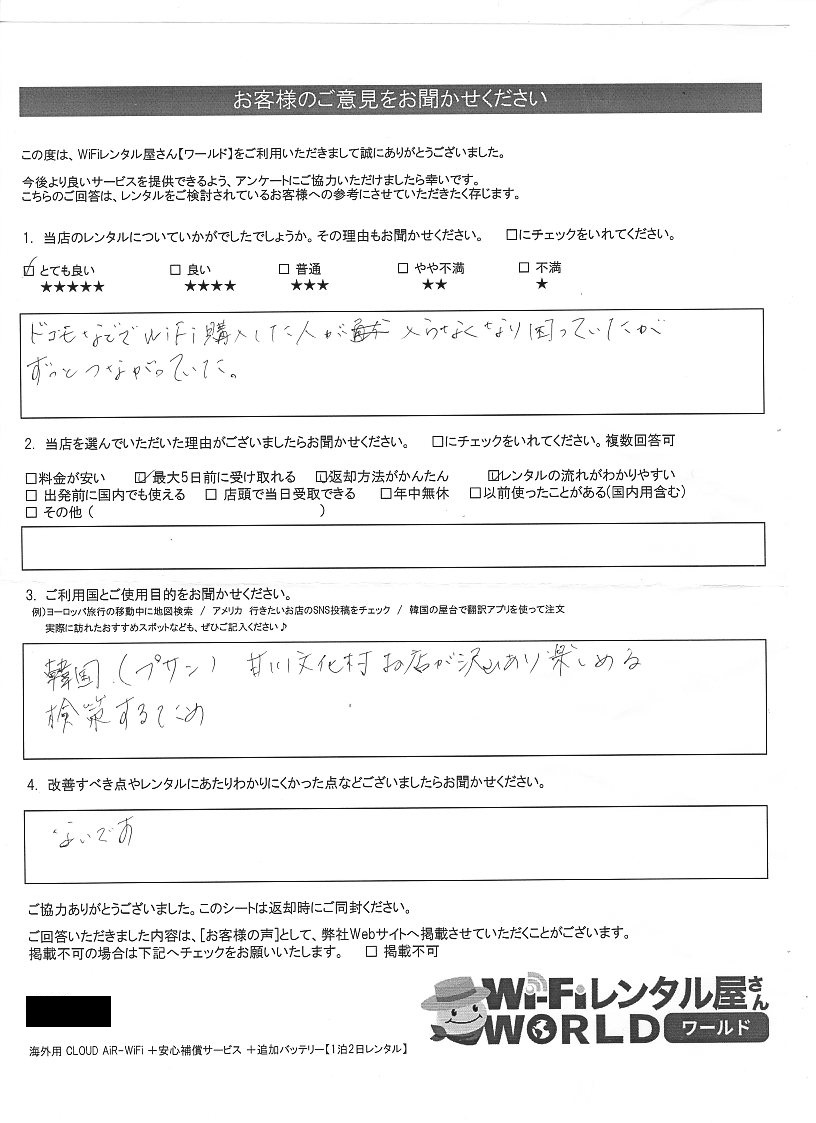 お客様のご意見をお聞かせください
この度は、WiFiレンタル屋さん【ワールド】をご利用いただきまして誠にありがとうございました。
今後より良いサービスを提供できるよう、アンケートにご協力いただけましたら幸いです。
こちらのご回答は、レンタルをご検討されているお客様への参考にさせていただきたく存じます。
1. 当店のレンタルについていかがでしたでしょうか。その理由もお聞かせください。 □にチェックをいれてください。
☑ とても良い □ 良い □ 普通 □ やや不満 □ 不満
★★★★★ ★★★★ ★★★ ★★ ★
ドコモなどでWiFi購入した人が入らなくなり困っていたが
ずっとつながっていた。
2. 当店を選んでいただいた理由がございましたらお聞かせください。 □にチェックをいれてください。複数回答可
□料金が安い ☑最大5日前に受け取れる ☑返却方法がかんたん ☑レンタルの流れがわかりやすい
□ 出発前に国内でも使える □ 店頭で当日受取できる □年中無休 □以前使ったことがある(国内用含む)
□ その他 ( )
3. ご利用国とご使用目的をお聞かせください。
例)ヨーロッパ旅行の移動中に地図検索 / アメリカ 行きたいお店のSNS投稿をチェック / 韓国の屋台で翻訳アプリを使って注文
実際に訪れたおすすめスポットなども、ぜひご記入ください♪
韓国(プサン) 甘川文化村 お店が沢山あり楽しめる
検策するため
4. 改善すべき点やレンタルにあたりわかりにくかった点などございましたらお聞かせください。
ないです
ご協力ありがとうございました。このシートは返却時にご同封ください。
ご回答いただきました内容は、[お客様の声]として、弊社Webサイトへ掲載させていただくことがございます。
掲載不可の場合は下記へチェックをお願いいたします。 □ 掲載不可
Wi-Fiレンタル屋さん
WORLD ワールド
海外用 CLOUD AiR-WiFi +安心補償サービス +追加バッテリー【1泊2日レンタル】